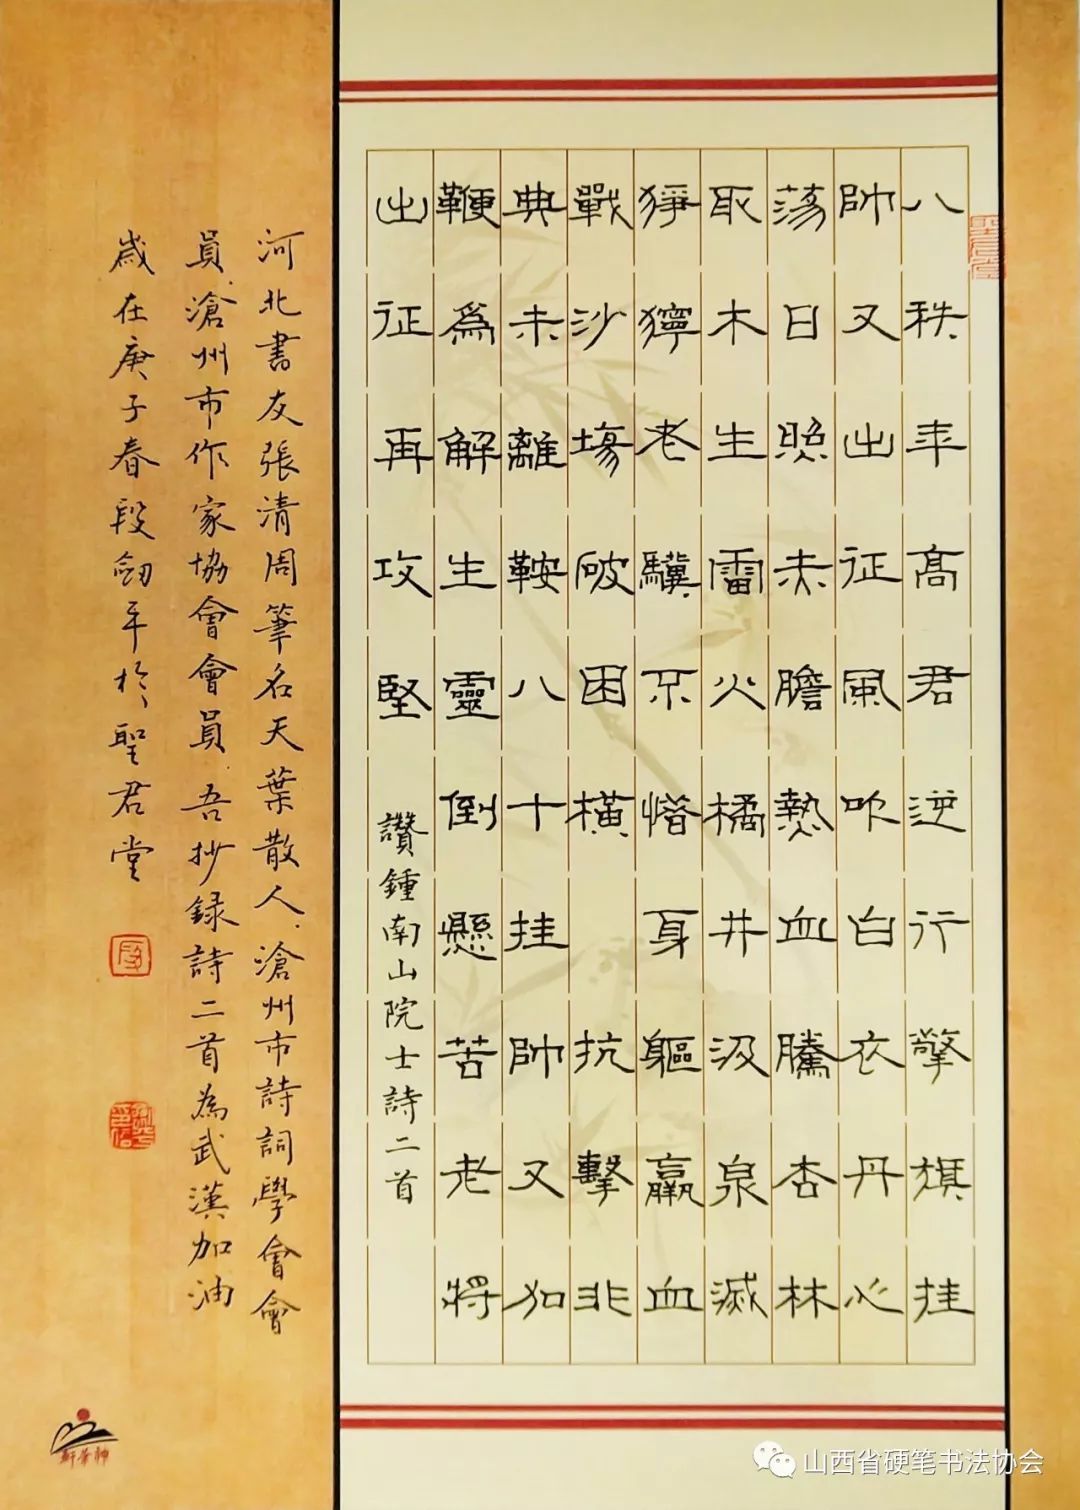 八秩年高君逆行擎旗挂
帥又出征風吹白衣丹心
蕩日照赤膽熱血騰杏林
取木生雷火橘井汲泉滅
猙獰老驥不惜身軀羸血
戰沙場破困橫 抗擊非
典未離鞍八十挂帥又加
鞭爲解生靈倒懸苦老將
出征再攻堅 讚鍾南山院士詩二首
河北書友張清周筆名天葉散人滄州市詩詞學會會
員滄州市作家協會會員吾抄録詩二首為武漢加油
歲在庚子春段劍平於聖君堂
聖君堂
段
山西省硬笔书法协会